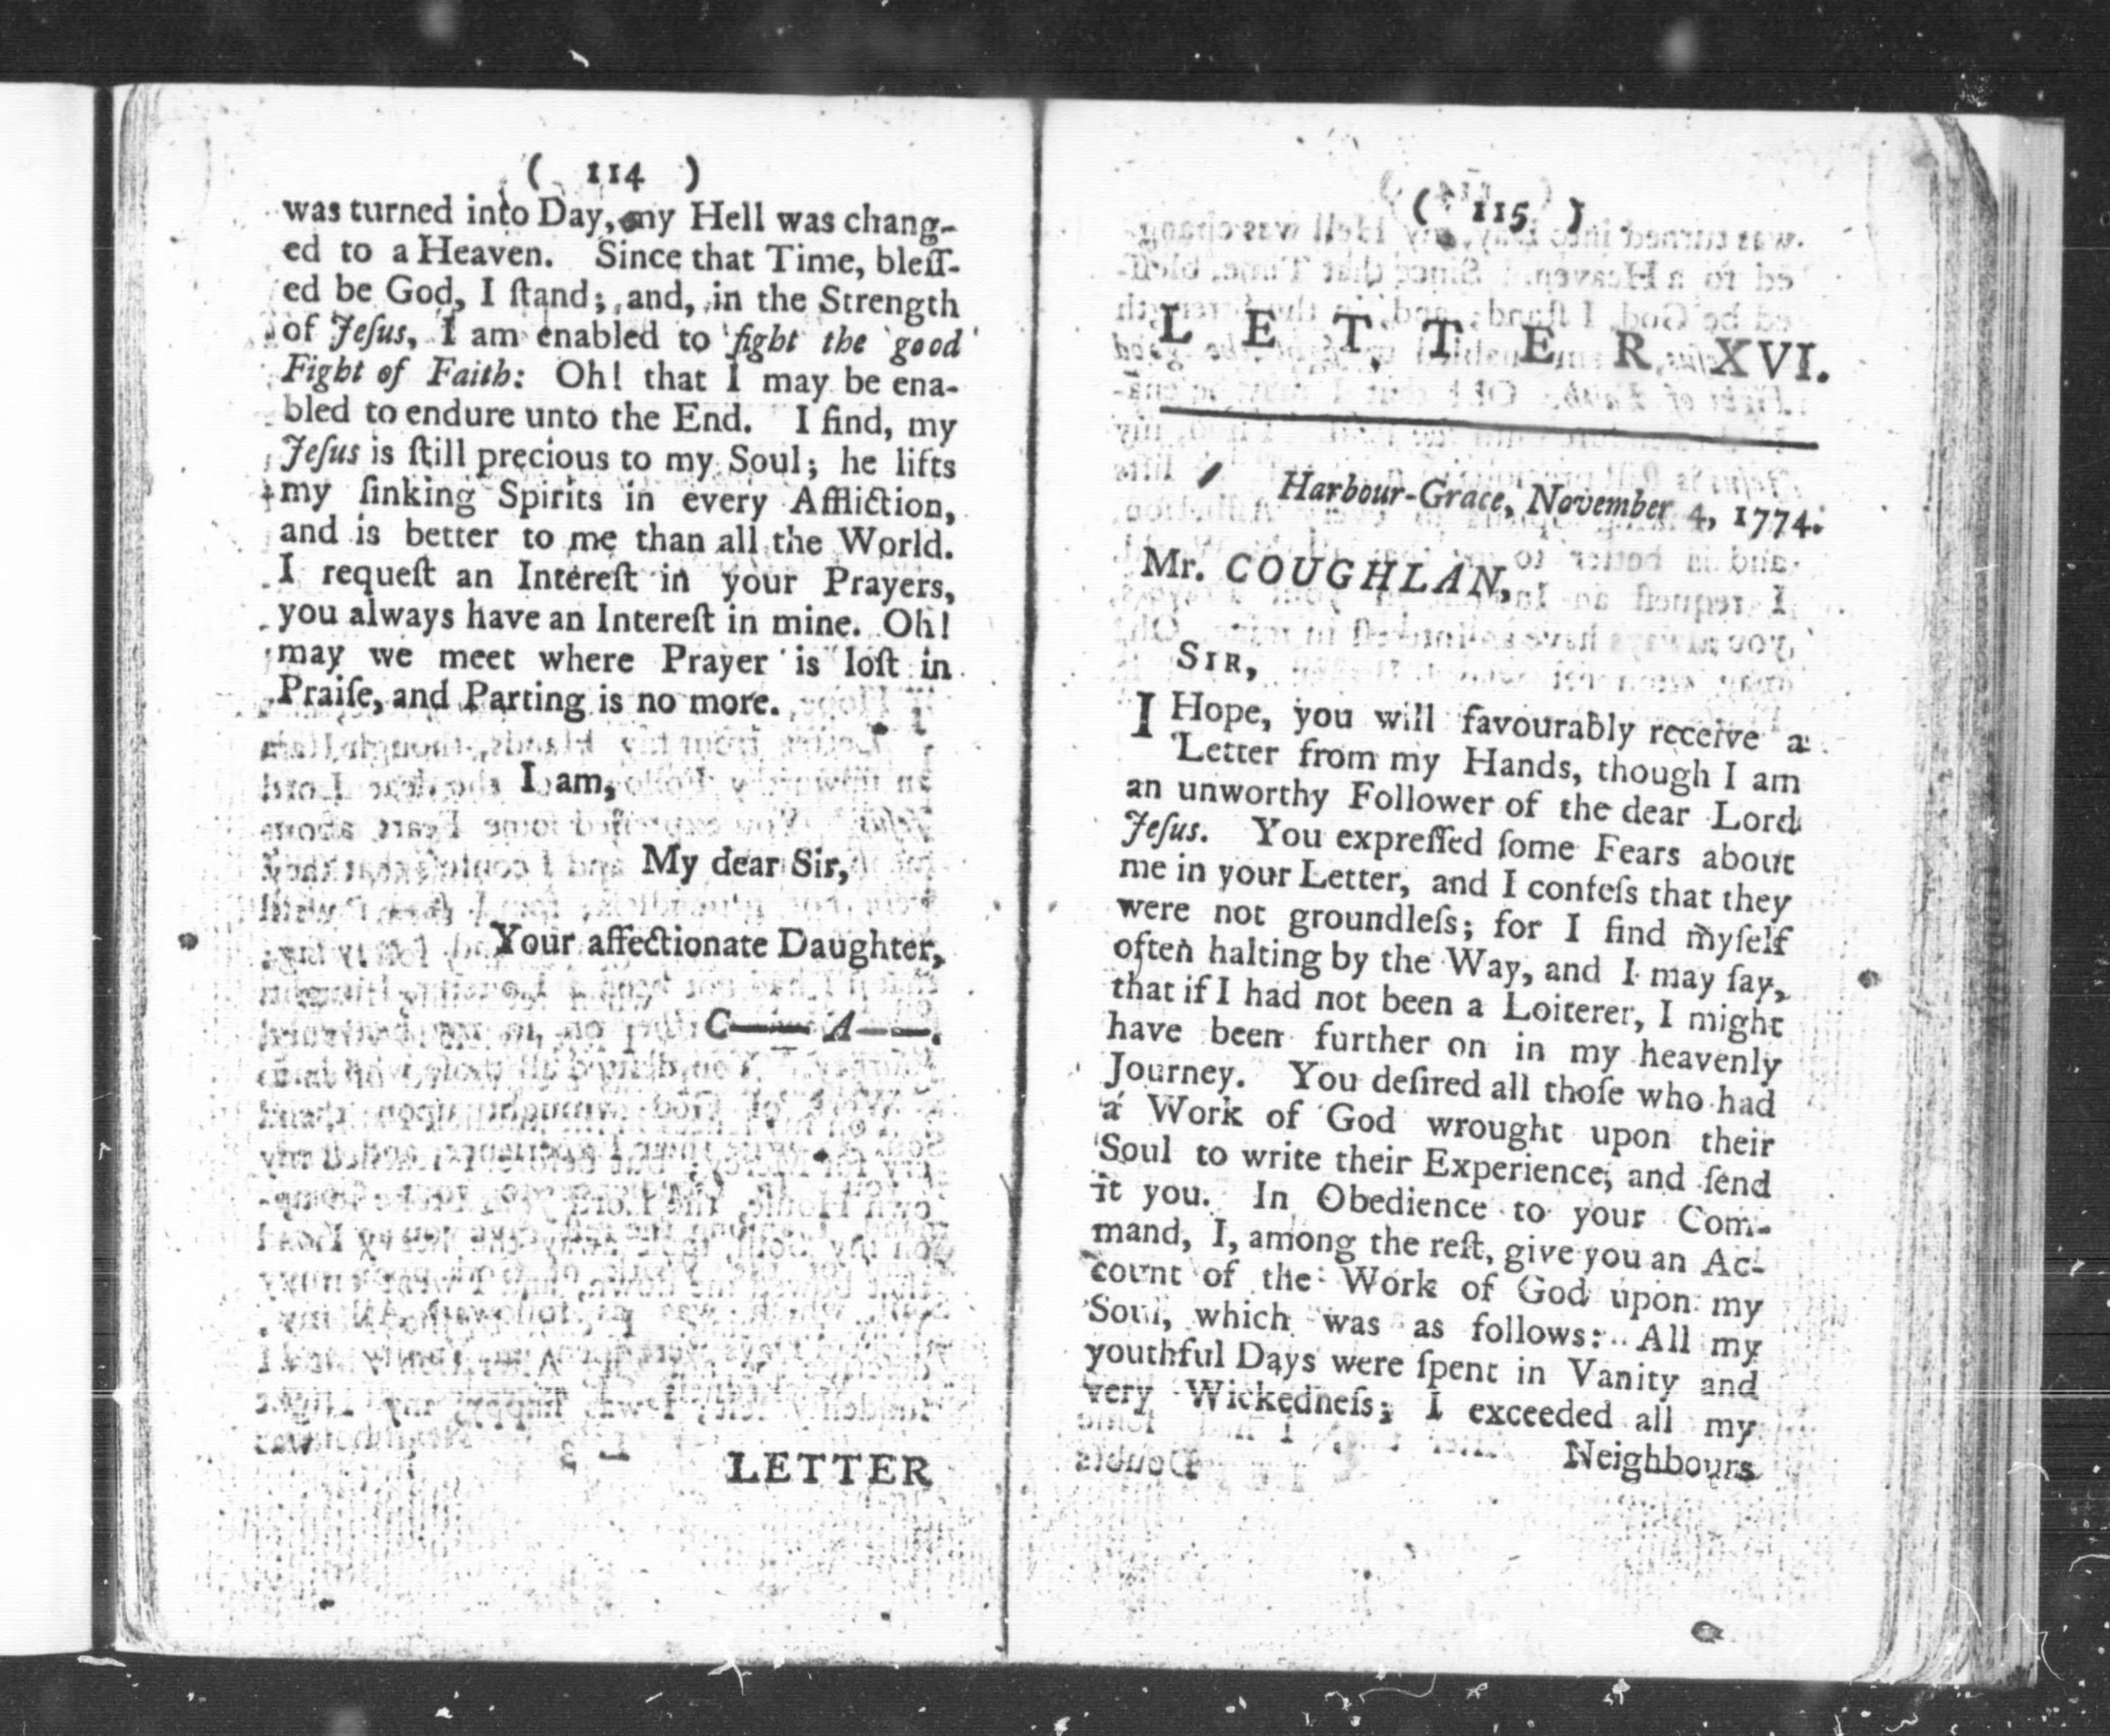 ( 114 )
was turned into Day, my Hell was chang-
ed to a Heaven. Since that Time, bleſſ-
ed be God, I ſtand; and, in the Strength
of Jeſus, I am enabled to fight the good
Fight of Faith: Oh! that I may be ena-
bled to endure unto the End. I find, my
Jeſus is ſtill precious to my Soul; he lifts
my ſinking Spirits in every Affliction,
and is better to me than all the World.
I requeſt an Intereſt in your Prayers,
you always have an Intereſt in mine. Oh!
may we meet where Prayer is loſt in
Praiſe, and Parting is no more.
I am,
My dear Sir,
Your affectionate Daughter,
C—— A——.
LETTER
( 115 )
LETTER XVI.
Harbour-Grace, November 4, 1774.
Mr. COUGHLAN,
SIR,
I Hope, you will favourably receive a
Letter from my Hands, though I am
an unworthy Follower of the dear Lord
Jeſus. You expreſſed ſome Fears about
me in your Letter, and I confeſs that they
were not groundleſs; for I find myſelf
often halting by the Way, and I may ſay,
that if I had not been a Loiterer, I might
have been further on in my heavenly
Journey. You deſired all thoſe who had
a Work of God wrought upon their
Soul to write their Experience, and ſend
it you. In Obedience to your Com-
mand, I, among the reſt, give you an Ac-
count of the Work of God upon my
Soul, which was as follows: All my
youthful Days were ſpent in Vanity and
very Wickedneſs; I exceeded all my
Neighbours